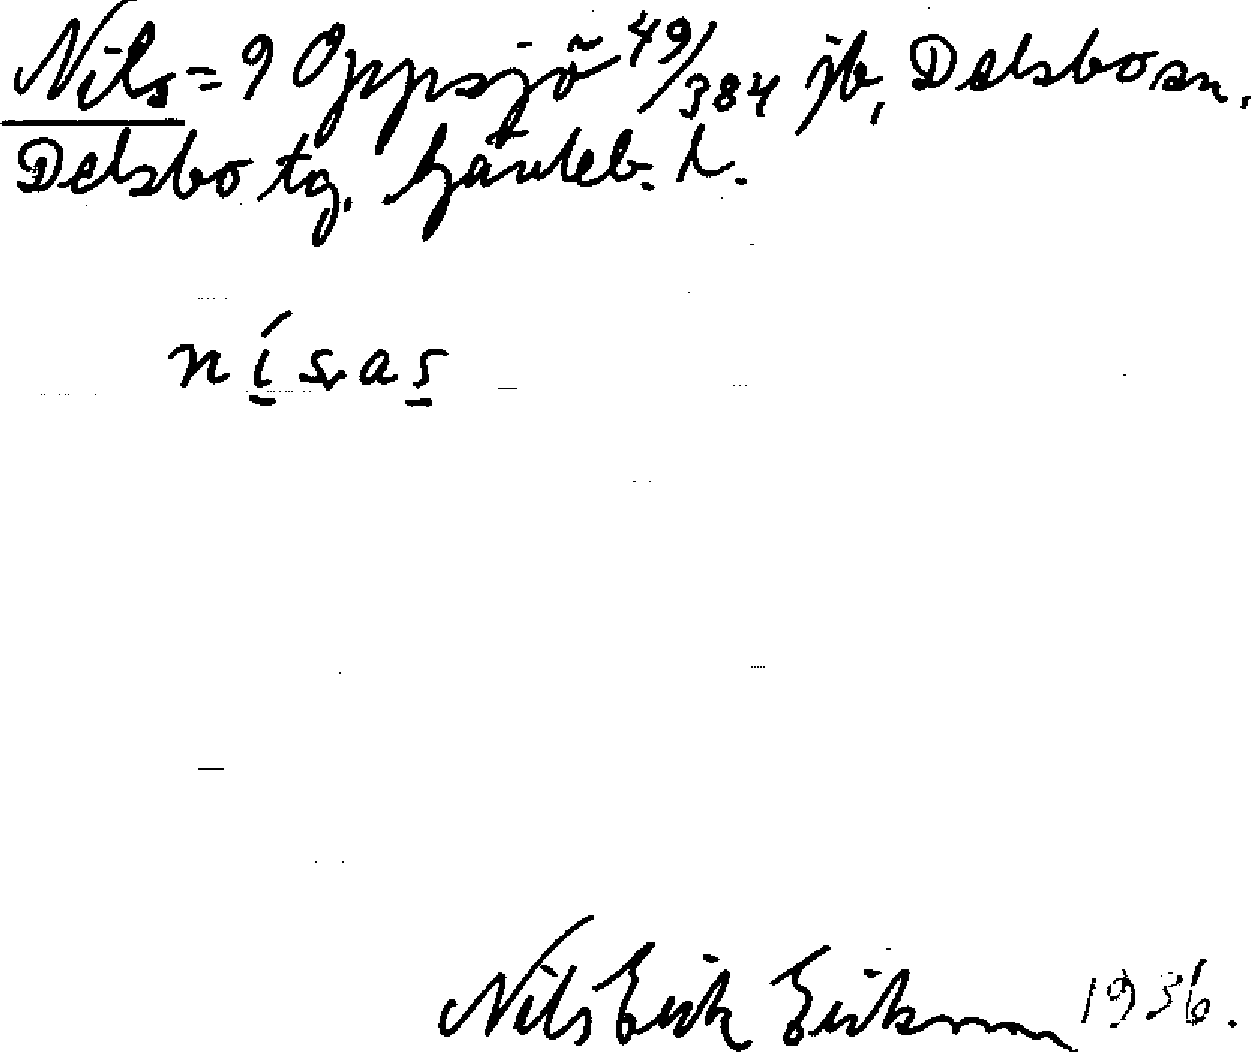 Nils = 9 Oppsjö 49/384 jb, Delsbo sn.
Delsbo tg. Gävleb. l.
nísas
Nils Erik Erikson 1936.